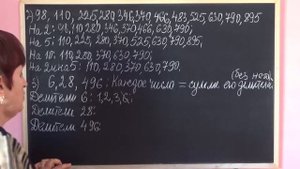 2) 98, 110, 225, 280, 346, 370, 466, 483, 525, 630, 790, 895
На 2: 98, 110, 280, 346, 370, 466, 630, 790;
На 5: 110, 225, 280, 370, 525, 630, 790, 895;
На 10: 110, 280, 370, 630, 790;
На 2 и на 5: 110, 280, 370, 630, 790.
(без него)
3) 6, 28, 496: Каждое число = сумма его делителей
Делители 6: 1, 2, 3, 6;
Делители 28:
Делители 496: